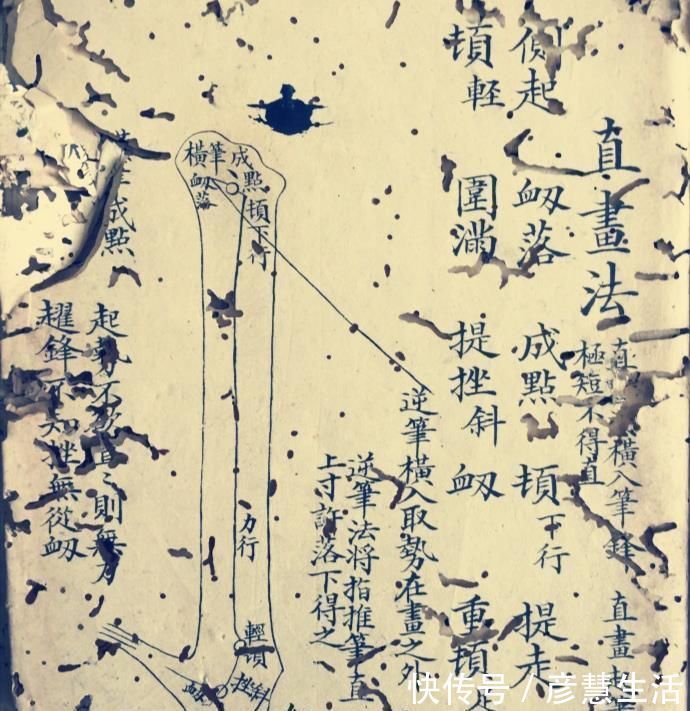 直畫法
直橫入筆鋒 直畫
極短不得直
起 衂落 成點 頓下行 提走
頓輕 圍滿 提挫斜衂 重頓
逆筆橫入取勢在畫之外
逆筆法將指推筆直
上寸許落下得之
成點
橫筆
衂落
頓下行
力行
輕頓
挫斜
衂
成點
起勢不直之則無力
趯鋒不知挫無從衂
快传号/彦慧生活